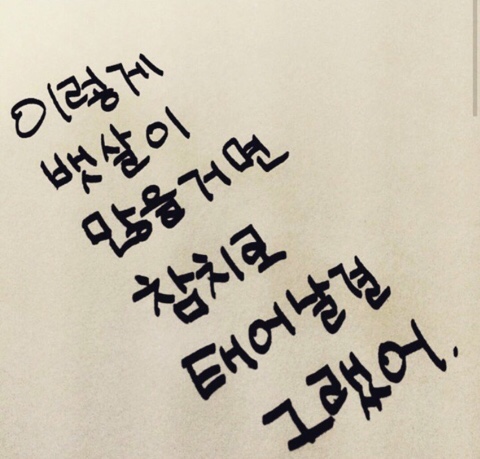 이렇게
뱃살이
많을거면
참치로
태어날껄
그랬어.